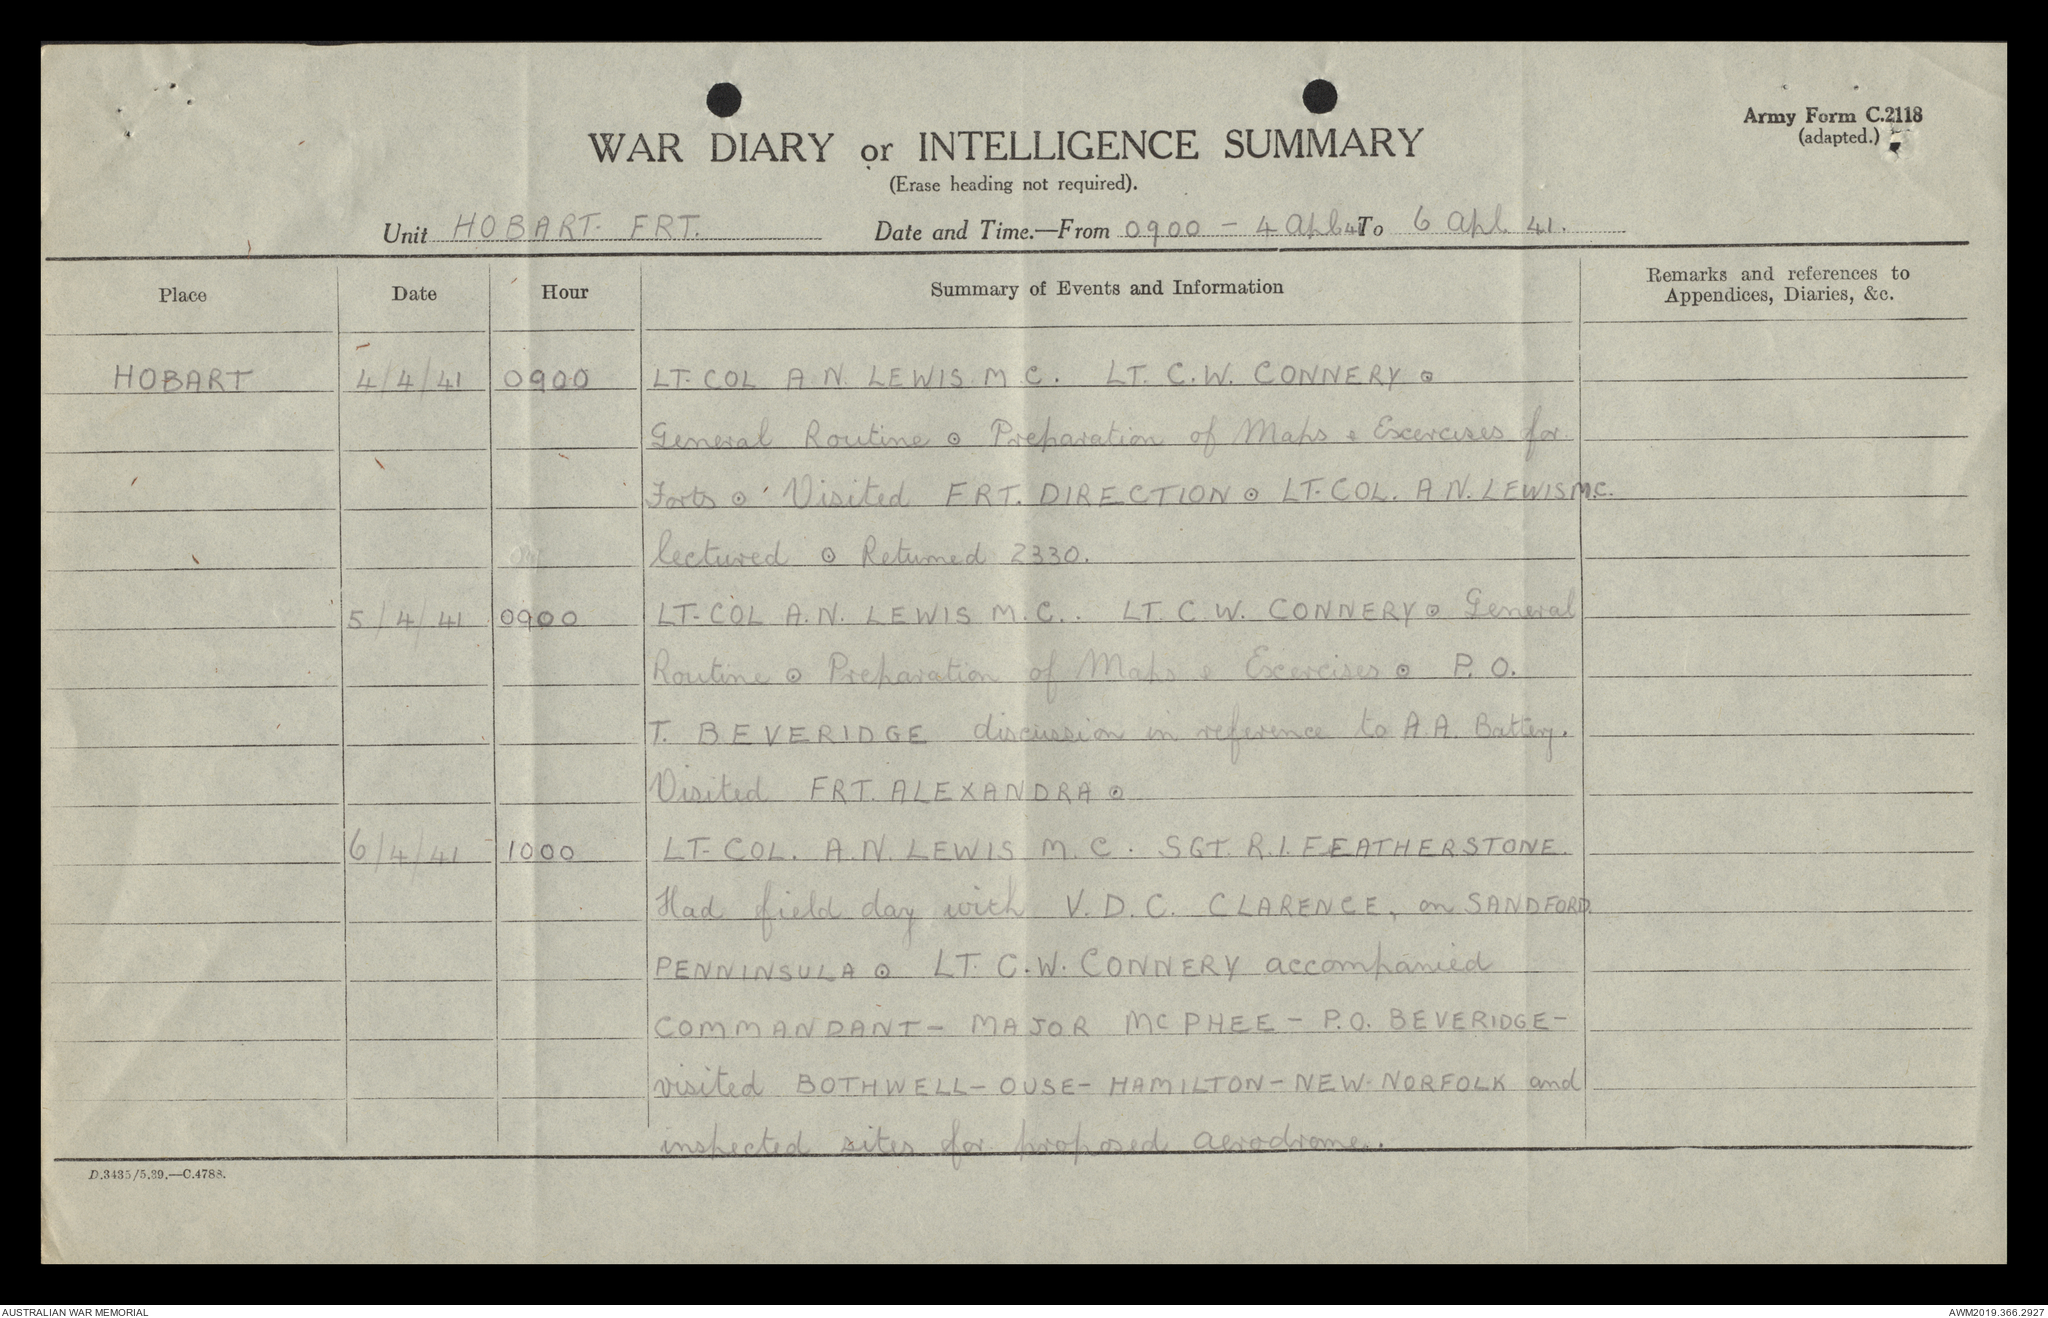 Army Form C.2118
(adapted.)
WAR DIARY or INTELLIGENCE SUMMARY
(Erase heading not required).
Unit HOBART. FRT. Date and Time.—From 0900 - 4 Apl 41 To 6 Apl. 41.
Place Date Hour Summary of Events and Information Remarks and references to
Appendices, Diaries, &c.
HOBART 4/4/41 0900 LT-COL A.N. LEWIS M.C. LT. C.W. CONNERY ⊙
General Routine ⊙ Preparation of Maps & Excercises for
Forts ⊙ Visited FRT. DIRECTION ⊙ LT-COL. A.N. LEWIS M.C.
lectured ⊙ Returned 2330.
5/4/41 0900 LT-COL A.N. LEWIS M.C.. LT. C.W. CONNERY ⊙ General
Routine ⊙ Preparation of Maps & Excercises ⊙ P.O.
T. BEVERIDGE discussion in reference to A.A. Battery.
Visited FRT. ALEXANDRA ⊙
6/4/41 1000 LT-COL. A.N. LEWIS M.C. SGT. R.I. FEATHERSTONE.
Had field day with V.D.C. CLARENCE, on SANDFORD
PENNINSULA ⊙ LT. C.W. CONNERY accompanied
COMMANDANT - MAJOR MCPHEE - P.O. BEVERIDGE -
visited BOTHWELL - OUSE - HAMILTON - NEW-NORFOLK and
inspected sites for proposed aerodrome.
D.3435/5.39.—C.4788.
AUSTRALIAN WAR MEMORIAL AWM2019.366.2927